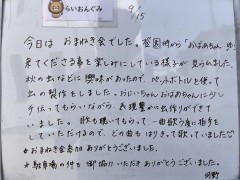 らいおんぐみ
9/15
今日は おまねき会でした。登園時から「おばあちゃん
来てくださる事を楽しみにしている様子が見られました。
秋の虫などに興味があったので、ペットボトルを使って
虫の製作もしました。おじいちゃんおばあちゃんに少し
手伝ってもらいながら、表現豊かに虫作りができて
いました。歌も聴いてもらって、一曲歌う度に拍手を
していただけるので、どの曲もはりきって歌っていました
☆おまねき会参加ありがとうございました。
☆駐車場の件も御協力いただきありがとうございました。